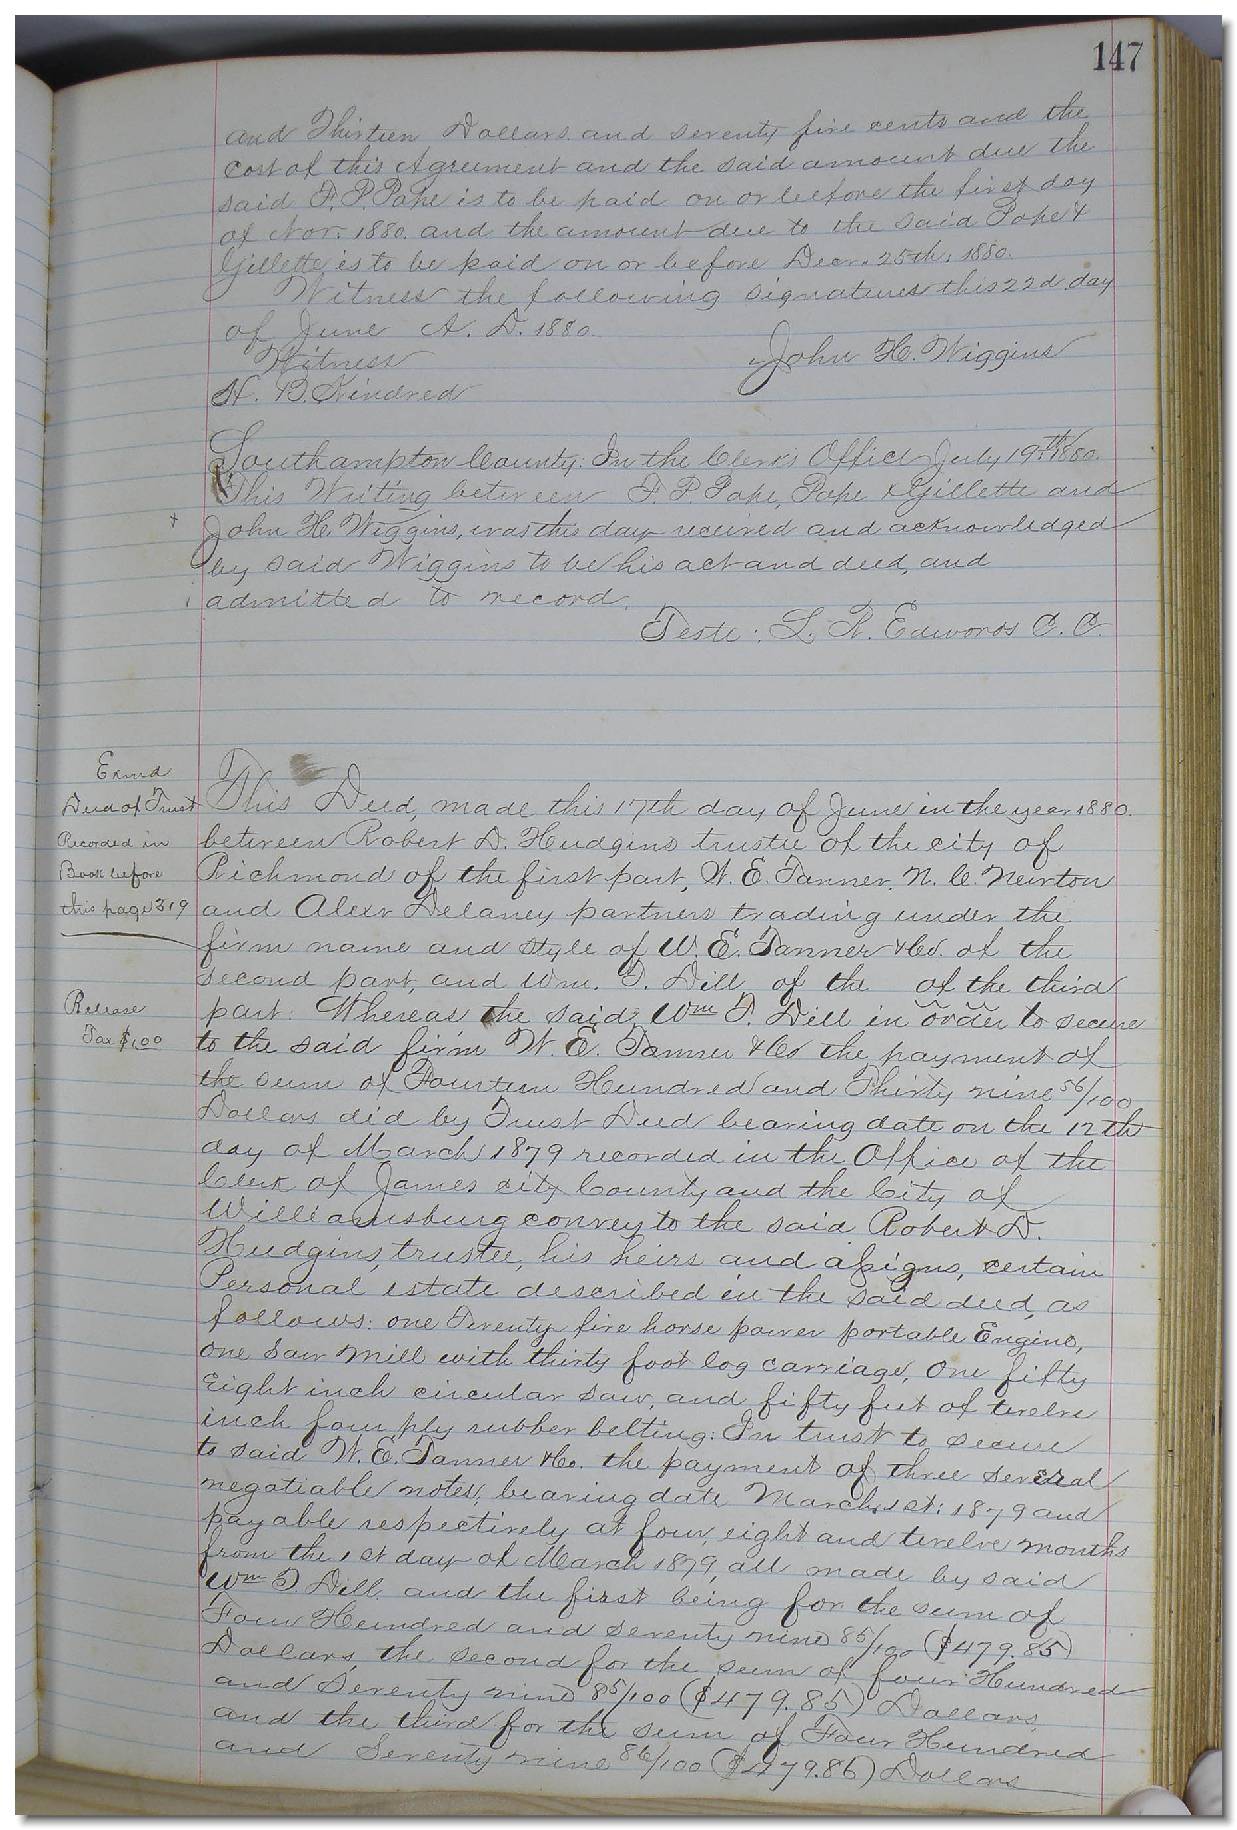 147
and Thirteen Dollars and seventy five cents and the
cost of this Agreement and the said amount due the
said F. P. Pope is to be paid on or before the first day
of Nov. 1880. and the amount due to the said Pope &
Gillette is to be paid on or before Decr. 25th, 1880.
Witness the following signatures this 22d day
of June A. D. 1880.
Witness John H. Wiggins
H. B. Kindred
Southampton County: In the Clerk's Office July 19th 1880.
This Writing between F. P. Pope, Pope & Gillette and
John H. Wiggins, was this day received and acknowledged
by said Wiggins to be his act and deed, and
admitted to record.
Teste: L. R. Edwards C. C.
Exmd
Deed of Trust
Recorded in
Book before
this page 319
Release
Tax $1.00
This Deed, made this 17th day of June in the year 1880.
between Robert D. Hudgins trustee of the city of
Richmond of the first part, W. E. Tanner, N. C. Newton
and Alexr Delaney partners trading under the
firm name and style of W. E. Tanner & Co. of the
second part, and Wm. T. Dill, of the of the third
part: Whereas the said, Wm T. Dill in order to secure
to the said firm W. E. Tanner & Co the payment of
the sum of Fourteen Hundred and Thirty nine 56/100
Dollars did by Trust Deed bearing date on the 12th
day of March 1879 recorded in the Office of the
Clerk of James city County, and the City of
Williamsburg convey to the said Robert D.
Hudgins, trustee, his heirs and assigns, certain
Personal estate described in the said deed, as
follows: one Twenty five horse power portable Engine,
one saw mill with thirty foot log carriage, One fifty
eight inch circular saw, and fifty feet of twelve
inch four ply rubber belting: In trust to secure
to said W. E. Tanner & Co. the payment of three several
negotiable notes, bearing date March 1st: 1879 and
payable respectively at four, eight and twelve months
from the 1st day of March 1879, all made by said
Wm T. Dill and the first being for the sum of
Four Hundred and seventy nine 85/100 ($479.85)
Dollars, the second for the sum of four Hundred
and Seventy nine 85/100 ($479.85) Dollars,
and the third for the sum of Four Hundred
and Seventy nine 86/100 ($479.86) Dollars